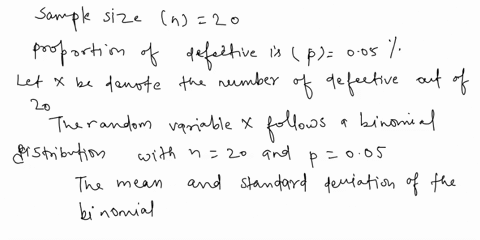 Sample size (n) = 20
proportion of defeltive is (p) = 0.05 %
Let x be denote the number of defective out of
20
The random variable x follows a binomial
distribution with n = 20 and p = 0.05
The mean and standard deviation of the
binomial